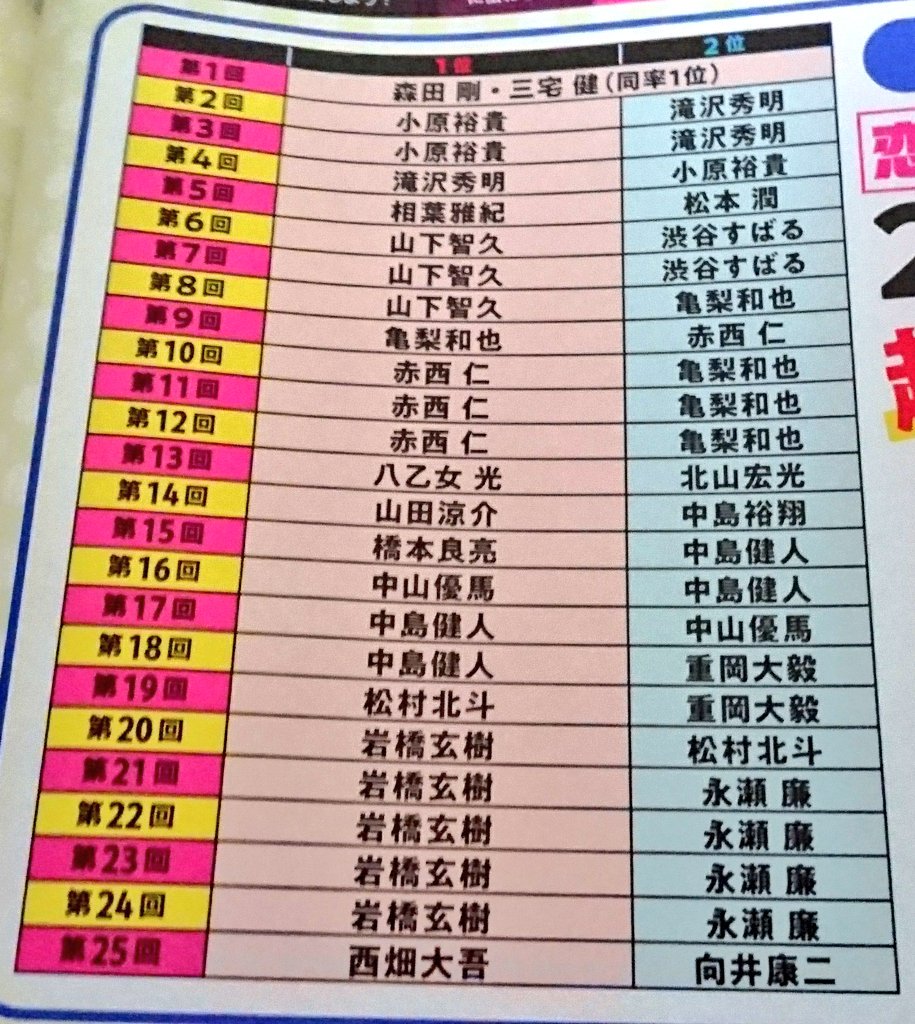 1位 2位
第1回 森田 剛・三宅 健(同率1位)
第2回 小原裕貴 滝沢秀明
第3回 小原裕貴 滝沢秀明
第4回 滝沢秀明 小原裕貴
第5回 相葉雅紀 松本 潤
第6回 山下智久 渋谷すばる
第7回 山下智久 渋谷すばる
第8回 山下智久 亀梨和也
第9回 亀梨和也 赤西 仁
第10回 赤西 仁 亀梨和也
第11回 赤西 仁 亀梨和也
第12回 赤西 仁 亀梨和也
第13回 八乙女 光 北山宏光
第14回 山田涼介 中島裕翔
第15回 橋本良亮 中島健人
第16回 中山優馬 中島健人
第17回 中島健人 中山優馬
第18回 中島健人 重岡大毅
第19回 松村北斗 重岡大毅
第20回 岩橋玄樹 松村北斗
第21回 岩橋玄樹 永瀬 廉
第22回 岩橋玄樹 永瀬 廉
第23回 岩橋玄樹 永瀬 廉
第24回 岩橋玄樹 永瀬 廉
第25回 西畑大吾 向井康二
恋
2